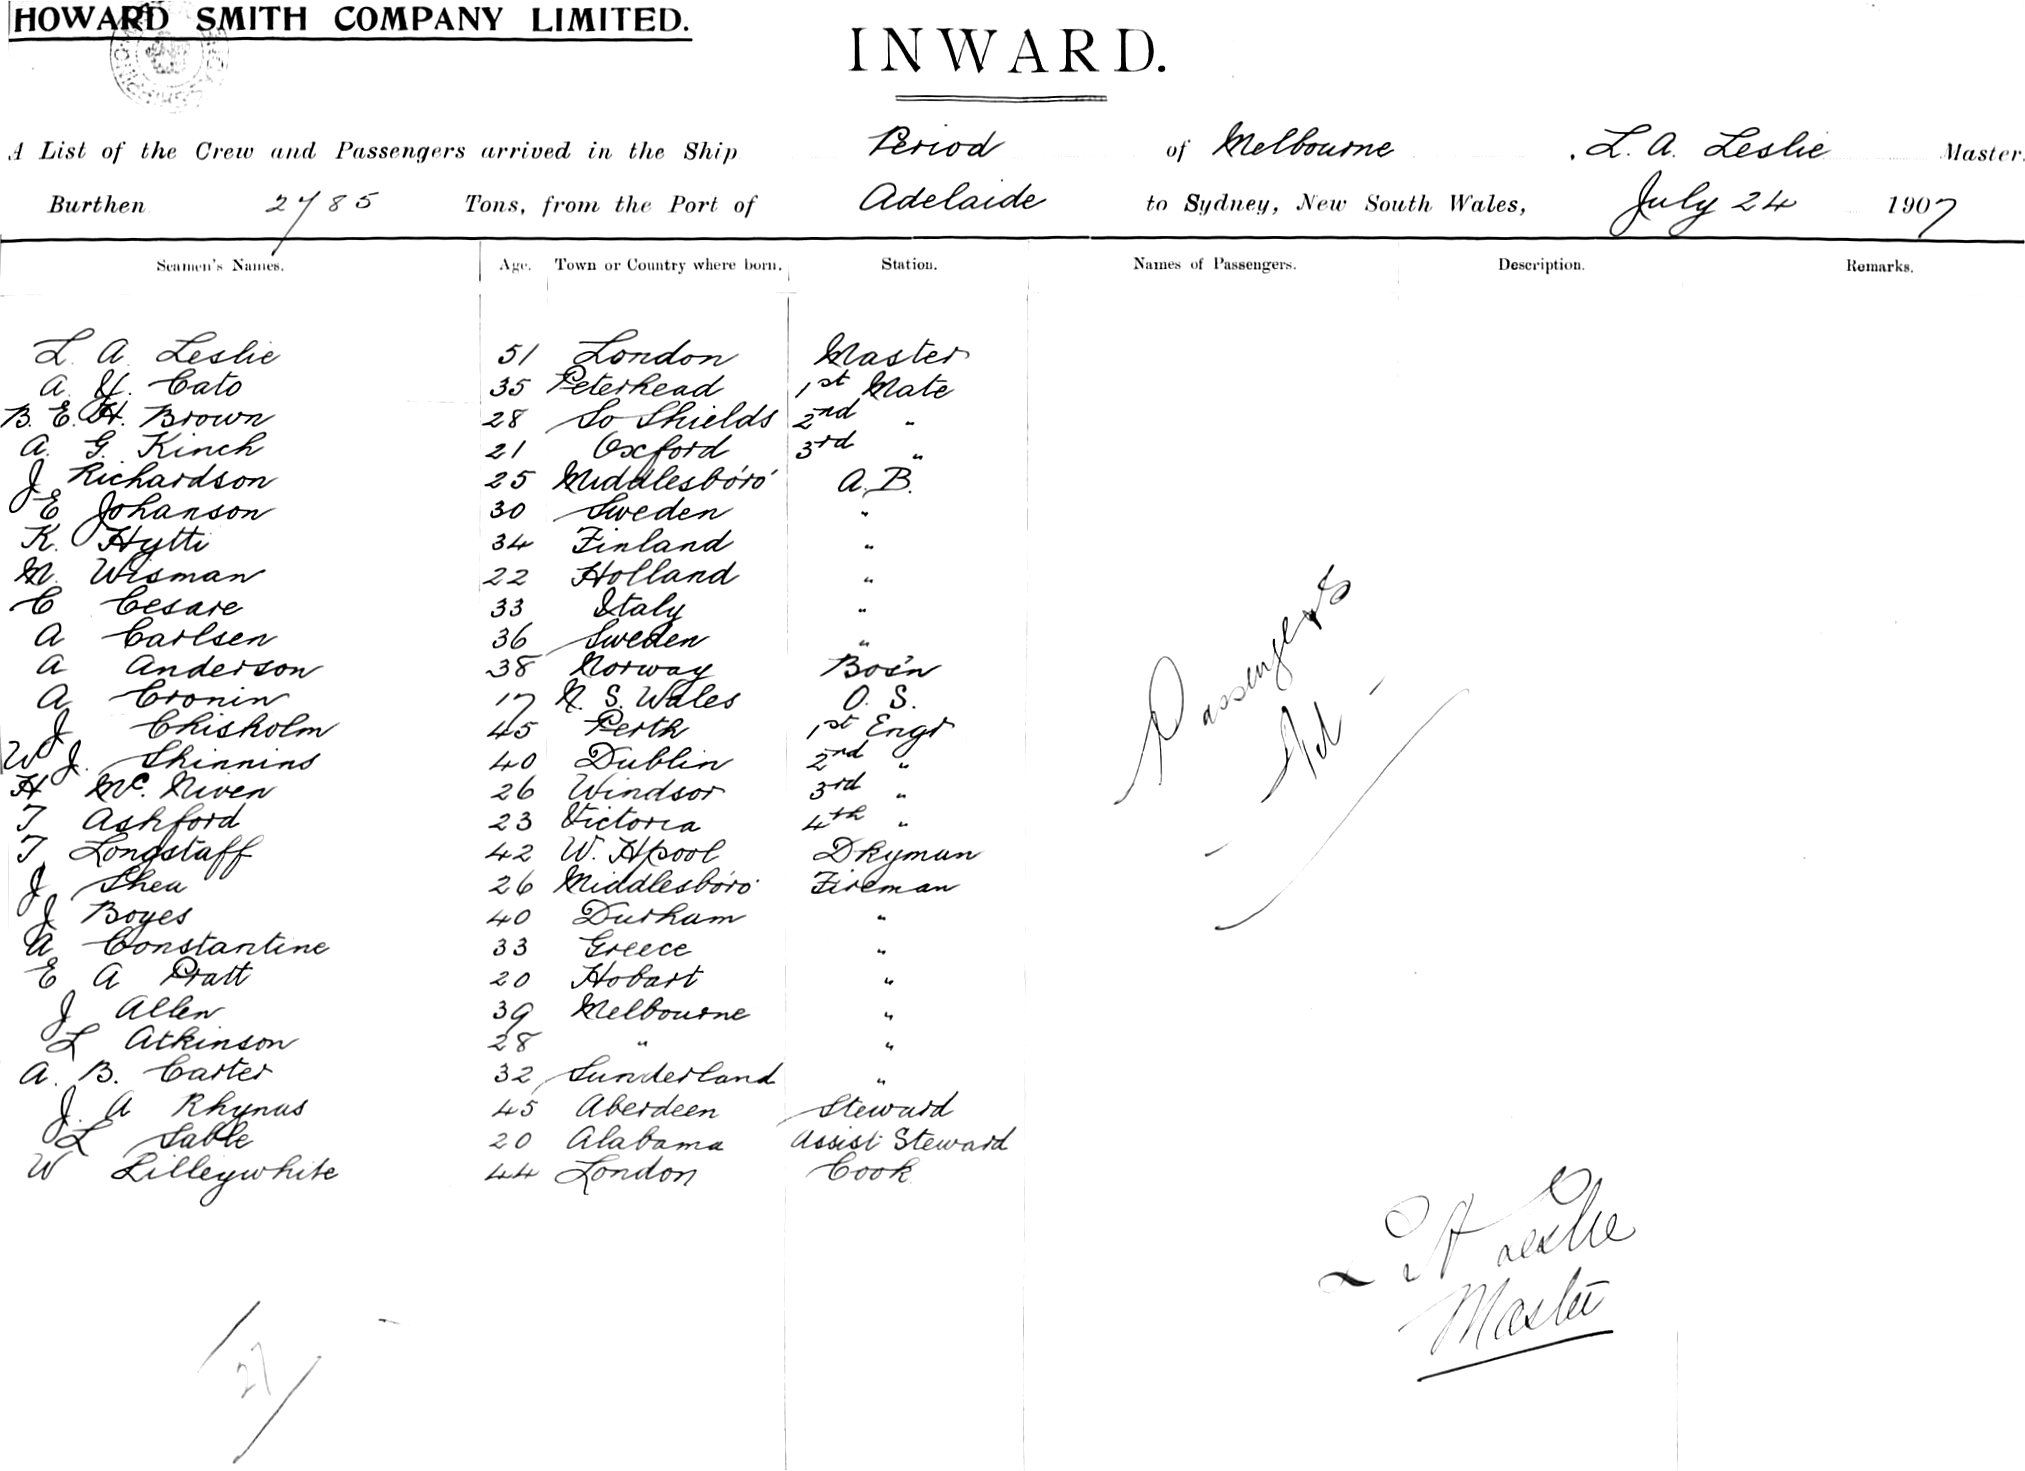 HOWARD SMITH COMPANY LIMITED.
INWARD.
A List of the Crew and Passengers arrived in the Ship Period of Melbourne, L. A. Leslie Master.
Burthen 2785 Tons, from the Port of Adelaide to Sydney, New South Wales, July 24 1907
Seamen's Names. Age. Town or Country where born. Station. Names of Passengers. Description. Remarks.
L. A. Leslie 51 London Master
A. Y. Cato 35 Peterhead 1st Mate
B. E. H. Brown 28 So Shields 2nd "
A. G. Kinch 21 Oxford 3rd "
J Richardson 25 Middlesboro' A.B.
E Johanson 30 Sweden "
K. Hytti 34 Finland "
M. Wisman 22 Holland "
C Cesare 33 Italy "
A Carlsen 36 Sweden "
A Anderson 38 Norway Bos'n
A Cronin 17 N. S. Wales O. S.
J Chisholm 45 Perth 1st Engr
W J. Skinnins 40 Dublin 2nd "
H Mc. Niven 26 Windsor 3rd "
T Ashford 23 Victoria 4th "
T Longstaff 42 W. Hpool Dkyman
J Shea 26 Middlesboro' Fireman
J Boyes 40 Durham "
A Constantine 33 Greece "
E A Pratt 20 Hobart "
J Allen 39 Melbourne "
L Atkinson 28 " "
A. B. Carter 32 Sunderland "
J. A Rhynas 45 Aberdeen Steward
L Sable 20 Alabama Assist Steward
W Lilleywhite 44 London Cook
Passengers
Nil
L A Leslie
Master
27